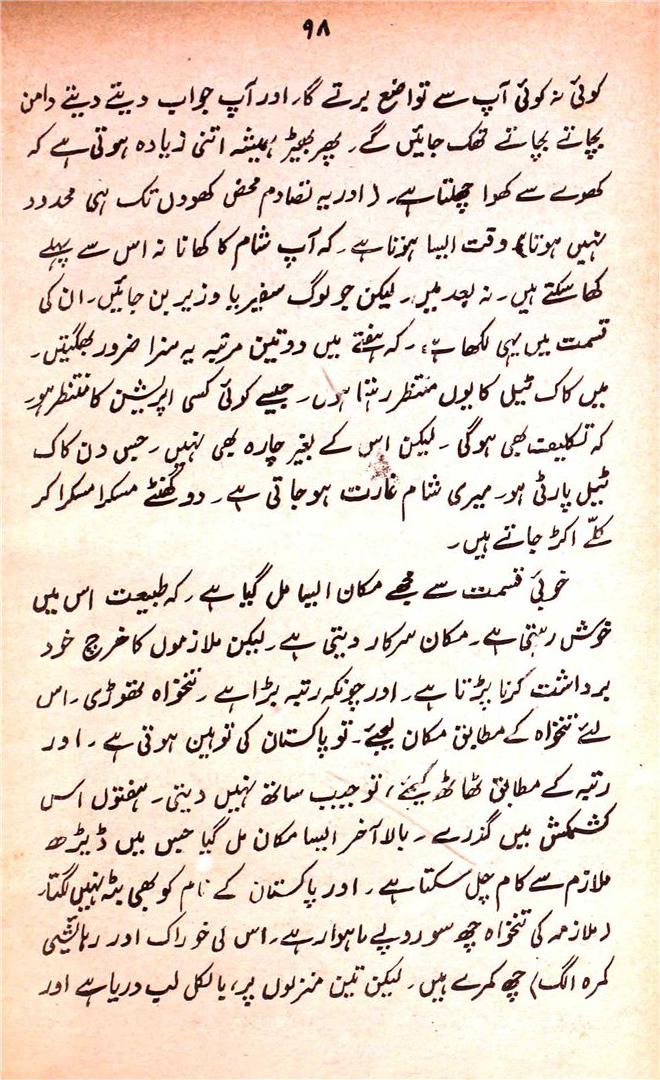 ۹۸
کوئی نہ کوئی آپ سے تواضع برتے گا۔ اور آپ جواب دیتے دیتے دامن
بچاتے بچاتے تھک جائیں گے۔ پھر بھیڑ ہمیشہ اتنی زیادہ ہوتی ہے کہ
کھوے سے کھوا چھلتا ہے۔ (اور یہ تصادم محض کھووں تک ہی محدود
نہیں ہوتا) وقت ایسا ہوتا ہے۔ کہ آپ شام کا کھانا نہ اس سے پہلے
کھا سکتے ہیں۔ نہ بعد میں۔ لیکن جو لوگ سفیر یا وزیر بن جائیں۔ ان کی
قسمت میں یہی لکھا ہے۔ کہ ہفتے میں دو تین مرتبہ یہ سزا ضرور بھگتیں۔
میں کاک ٹیل کا یوں منتظر رہتا ہوں۔ جیسے کوئی کسی اپریشن کا منتظر ہو۔
کہ تکلیف بھی ہوگی۔ لیکن اس کے بغیر چارہ بھی نہیں۔ جس دن کاک
ٹیل پارٹی ہو۔ میری شام غارت ہو جاتی ہے۔ دو گھنٹے مسکرا مسکرا کر
کلّے اکڑ جاتے ہیں۔
خوبیٔ قسمت سے مجھے مکان ایسا مل گیا ہے۔ کہ طبیعت اس میں
خوش رہتی ہے۔ مکان سرکار دیتی ہے۔ لیکن ملازموں کا خرچ خود
برداشت کرنا پڑتا ہے۔ اور چونکہ رتبہ بڑا ہے۔ تنخواہ تھوڑی۔ اس
لئے تنخواہ کے مطابق مکان لیجئے۔ تو پاکستان کی توہین ہوتی ہے۔ اور
رتبہ کے مطابق ٹھاٹھ کیجئے، تو جیب ساتھ نہیں دیتی۔ ہفتوں اس
کشمکش میں گذرے۔ بالاآخر ایسا مکان مل گیا جس میں ڈیڑھ
ملازم سے کام چل سکتا ہے۔ اور پاکستان کے نام کو بھی بٹہ نہیں لگتا۔
(ملازمہ کی تنخواہ چھ سو روپے ماہوار ہے۔ اس کی خوراک اور رہائشی
کمرہ الگ) چھ کمرے ہیں۔ لیکن تین منزلوں پر، بالکل لب دریا ہے اور